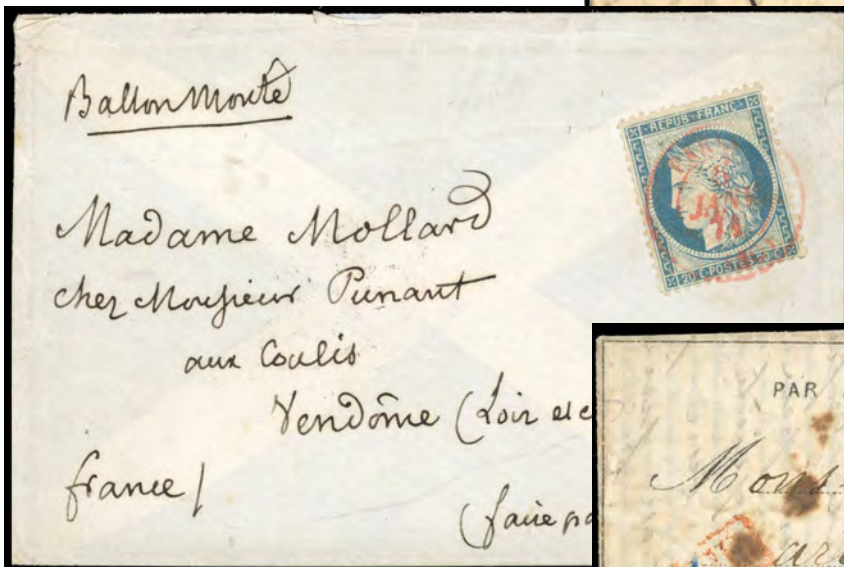 Ballon Monté
REPUB · FRANC
JANV
71
20 C POSTES 20 C
Madame Mollard
chez Monsieur Punant
aux Coulis
Vendôme (Loir et c
france /
(faire pa
PAR
Mons